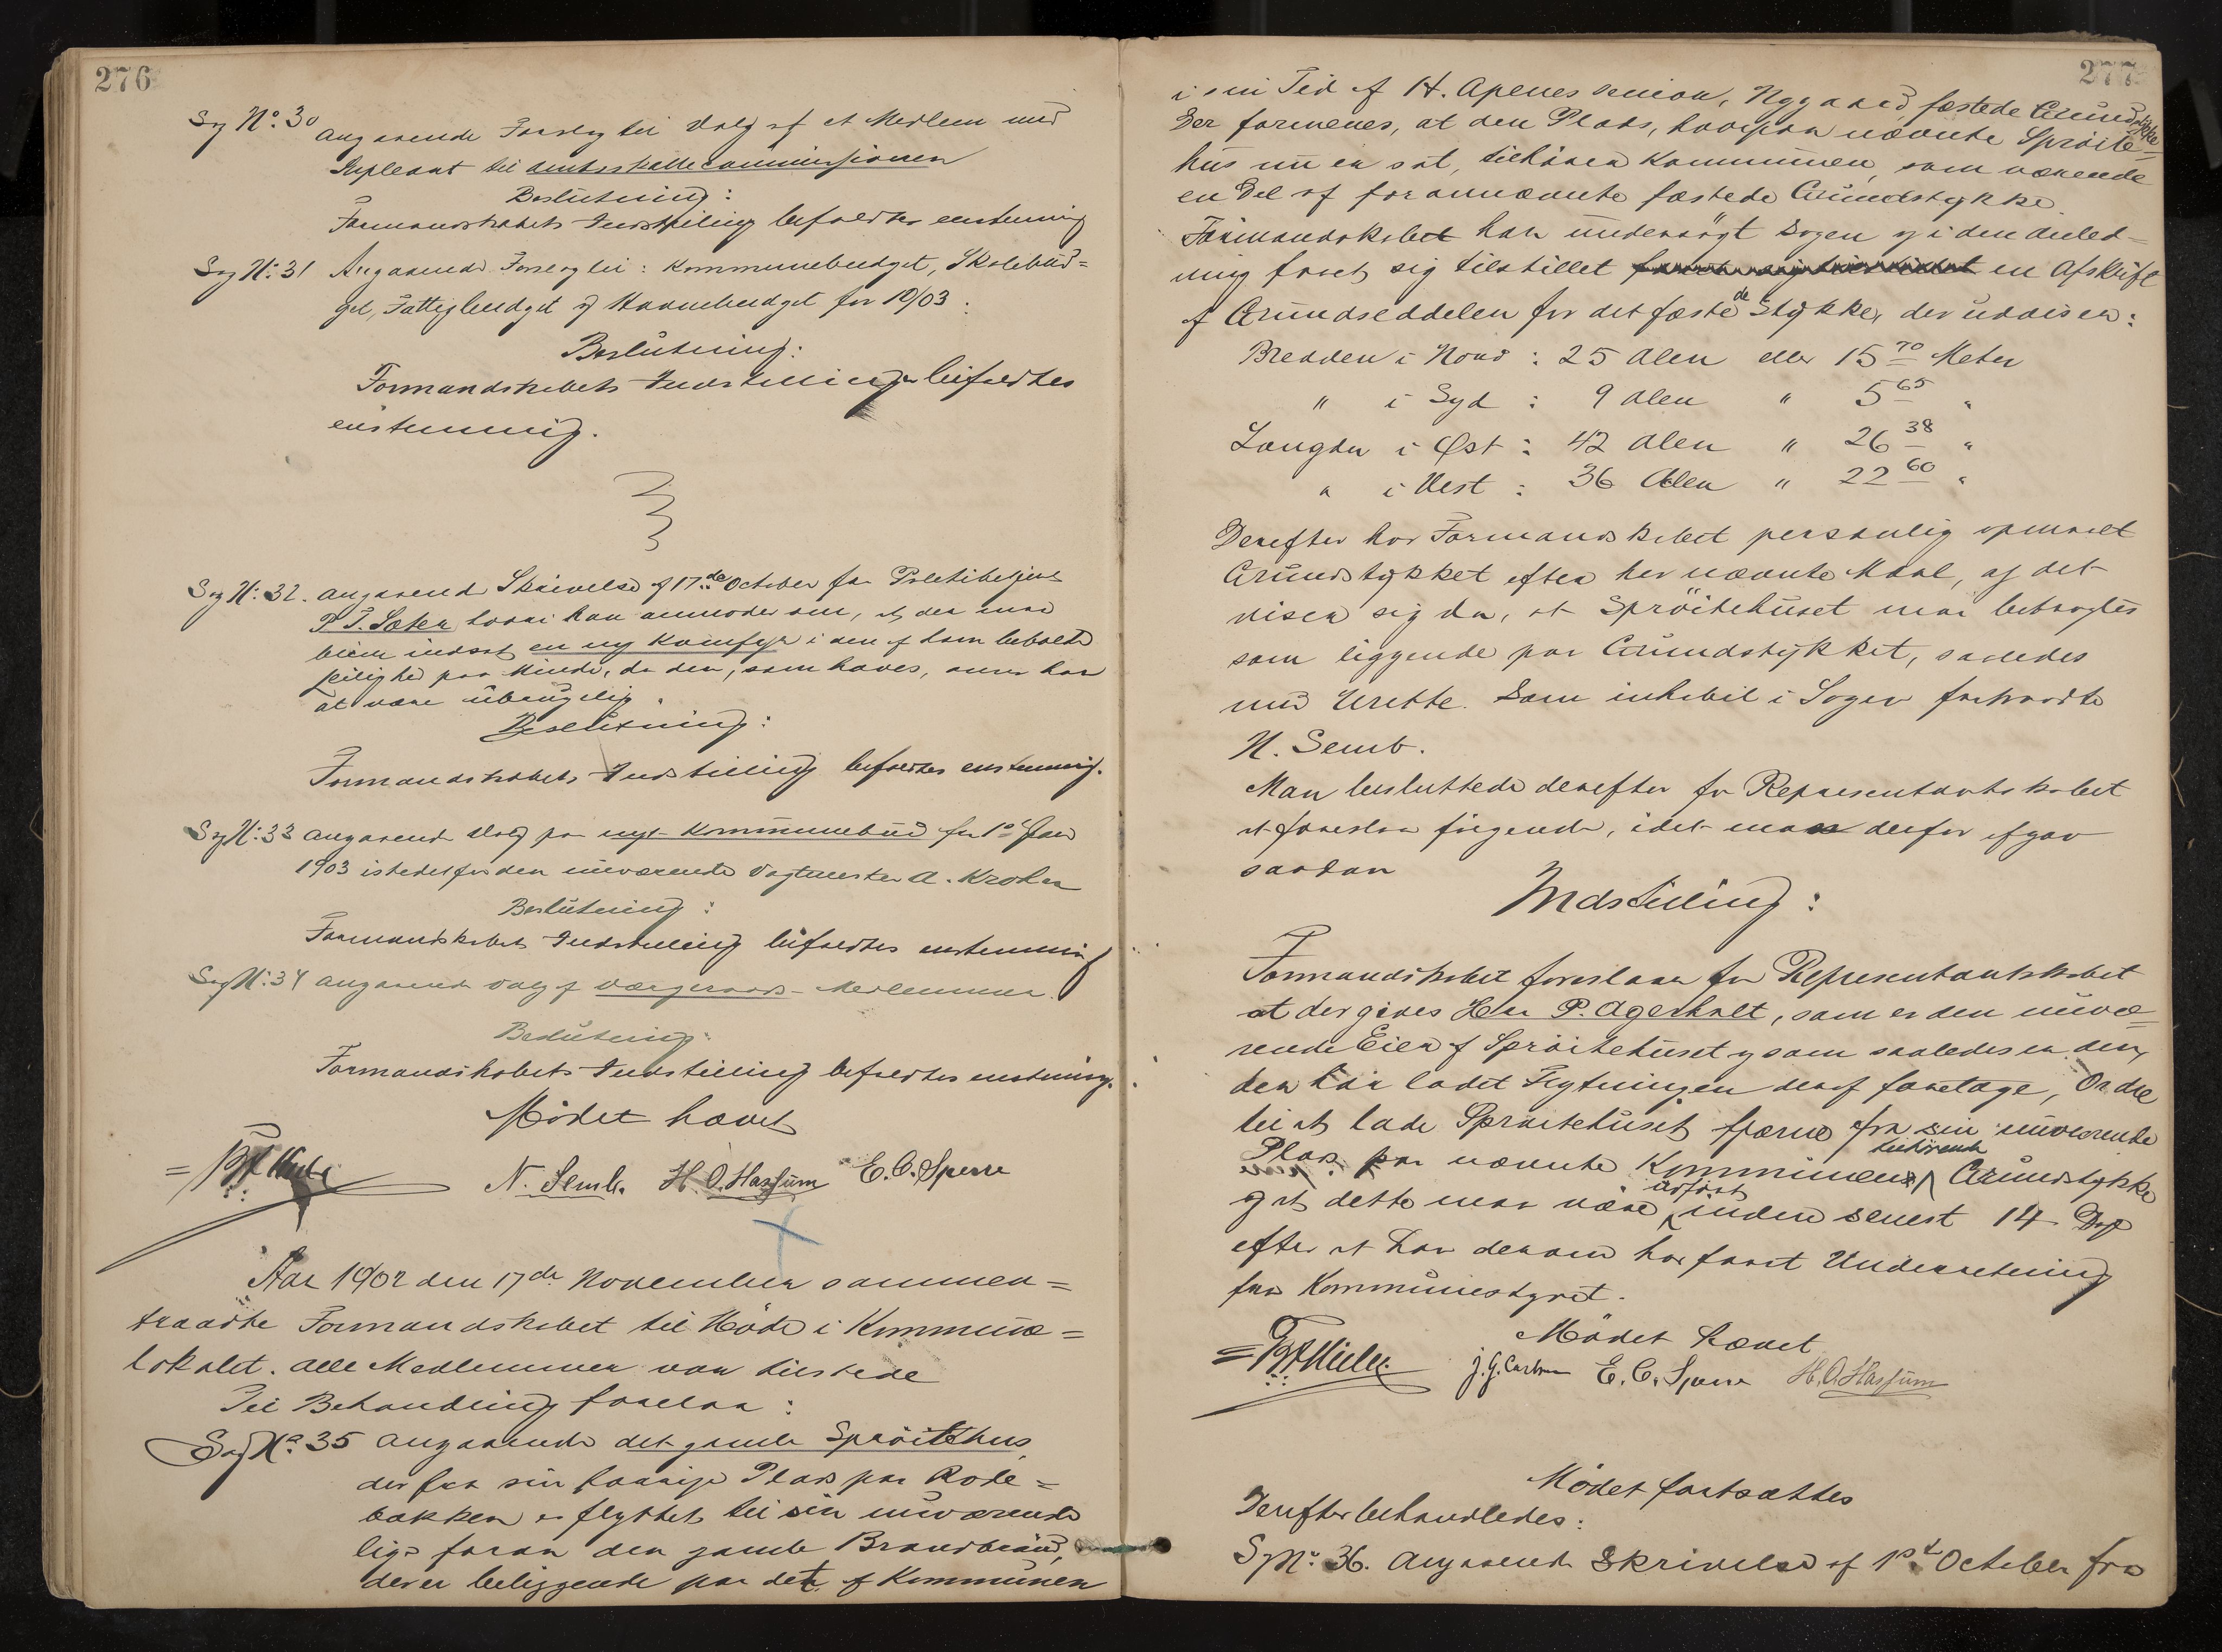 276
Sag No. 30 Angaaende Forslag til Valg af et Medlem med
Supleant til amtsskattecommissionen
Beslutning:
Formandskabets Indstilling bifaldtes enstemmig
Sag No: 31 Angaaende Forslag til: Kommunebudget, Skolebud=
get, Fattigbudget og Havnebudget for 1903:
Beslutning:
Formandskabets Indstilling bifaldtes
enstemmig.
Sag No: 32. angaaende Skrivelse af 17de October fra Politibetjent
P. T. Sæter hvori han anmoder om, at der maa
blive indsat en ny Komfyr i den af ham beboede
Leilighed paa Minde, da den, som haves, anser han
at være ubrugelig.
Beslutning:
Formandskabets Indstilling bifaldtes enstemmig.
Sag No: 33 angaaende Valg paa nyt Kommunebud fra 1ste Jan
1903 istedetfor den nuværende Vagtmester A. Krohn
Beslutning:
Formandskabets Indstilling bifaldtes enstemmig
Sag No: 34 angaaende Valg af Værgeraads-Medlemmer.
Beslutning:
Formandskabets Indstilling bifaldtes enstemmig.
Mödet hævet
N. Semb. H. O. Hassum E. C. Sperre
Aar 1902 den 17de November sammen=
traadte Formandskabet til Möde i Kommune=
lokalet. Alle Medlemmer var tilstede
Til Behandling forelaa:
Sag No. 35 angaaende det gamle Spröitehus,
der fra sin forrige Plads paa Rode=
bakken er flyttet til sin nuværende
lige foran den gamle Brandbrönd,
der er beliggende paa det af Kommunen
277
i sin Tid af H. Apenes senior, Nygaard, fæstede Grundstykke
Der formenes, at den Plads, hvorpaa nævnte Spröite=
hus nu er sat, tilhörer Kommunen, som værende
en Del af forannævnte fæstede Grundstykke.
Formandskabet har undersögt Sagen og i den Anled=
ning faaet sig tilstillet en Afskrift
af Grundseddelen for det fæstede Stykke, der udviser:
Bredden i Nord: 25 Alen eller 15 70 Meter
" i Syd: 9 Alen " 5 65 "
Længden i Øst: 42 Alen " 26 38 "
" i Vest: 36 Alen " 22 60 "
Derefter har Formandskabet personlig opmaalt
Grundstykket efter her nævnte Maal, og det
viser sig da, at Spröitehuset maa betragtes
som liggende paa Grundstykket, saaledes
med Urette. Som inhabil i Sagen fratraadte
N. Semb.
Man besluttede derefter for Repræsentantskabet
at foreslaa fölgende, idet man derfor afgav
saadan
Indstilling:
Formandskabet foreslaar for Repræsentantskabet
at der gives Herr P. Agerholt, som er den nuvæ=
rende Eier af Spröitehuset og som saaledes er den,
der har ladet Flytningen deraf foretage, Ordre
til at lade Spröitehuset fjerne fra sin nuværende
Plads paa nævnte Kommunen tilhörende Grundstykke
og at dette maa være udfört inden senest 14 Dage
efter at han derom har faaet Underretning
fra Kommunestyret.
Mödet hævet
J. G. Carlsen E. C. Sperre H. O. Hassum
Mödet fortsættes
Derefter behandledes:
Sag No: 36. Angaaende Skrivelse af 1ste October fra